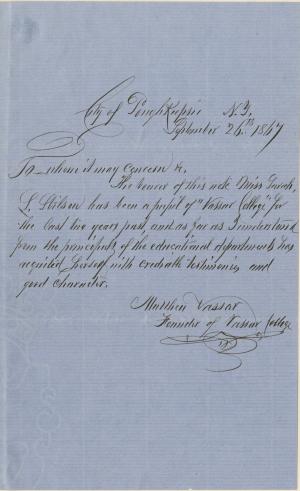 City of Poughkeepsie N.Y.
September 26th 1867
To whom it may concern &,
The bearer of this note Miss Sarah
L. Stilson has been a pupil of "Vassar College" for
the last two years past and as far as I understand
from the principals of the educational departments has
acquited herself with creditable testimonies and
good character.
Matthew Vassar
Founder of Vassar College